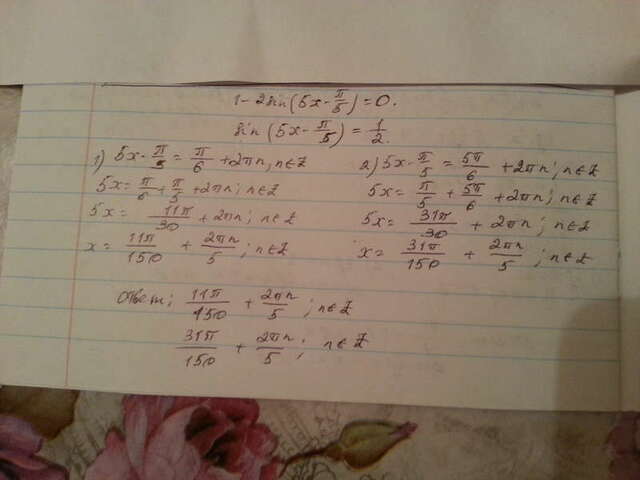 1-2sin(5x-π/5)=0.
sin(5x-π/5)=1/2.
1) 5x-π/5=π/6+2πn, n∈Z
5x=π/6+π/5+2πn; n∈Z
5x=11π/30+2πn; n∈Z
x=11π/150+2πn/5; n∈Z
2) 5x-π/5=5π/6+2πn; n∈Z
5x=π/5+5π/6+2πn; n∈Z
5x=31π/30+2πn; n∈Z
x=31π/150+2πn/5; n∈Z
Ответ: 11π/150+2πn/5; n∈Z
31π/150+2πn/5; n∈Z